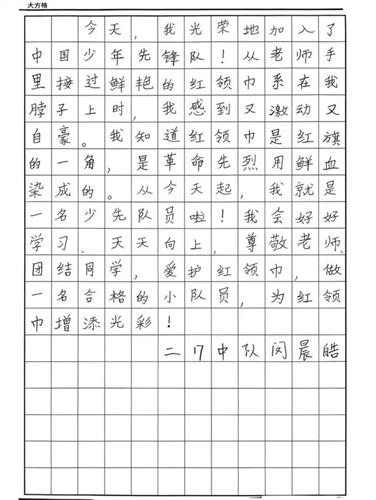 大方格
今天，我光荣地加入了
中国少年先锋队！从老师手
里接过鲜艳的红领巾系在我
脖子上时，我感到又激动又
自豪。我知道红领巾是红旗
的一角，是革命先烈用鲜血
染成的。从今天起，我就是
一名少先队员啦！我会好好
学习、天天向上，尊敬老师、
团结同学，爱护红领巾，做
一名合格的小队员，为红领
巾增添光彩！
二17中队闵晨皓